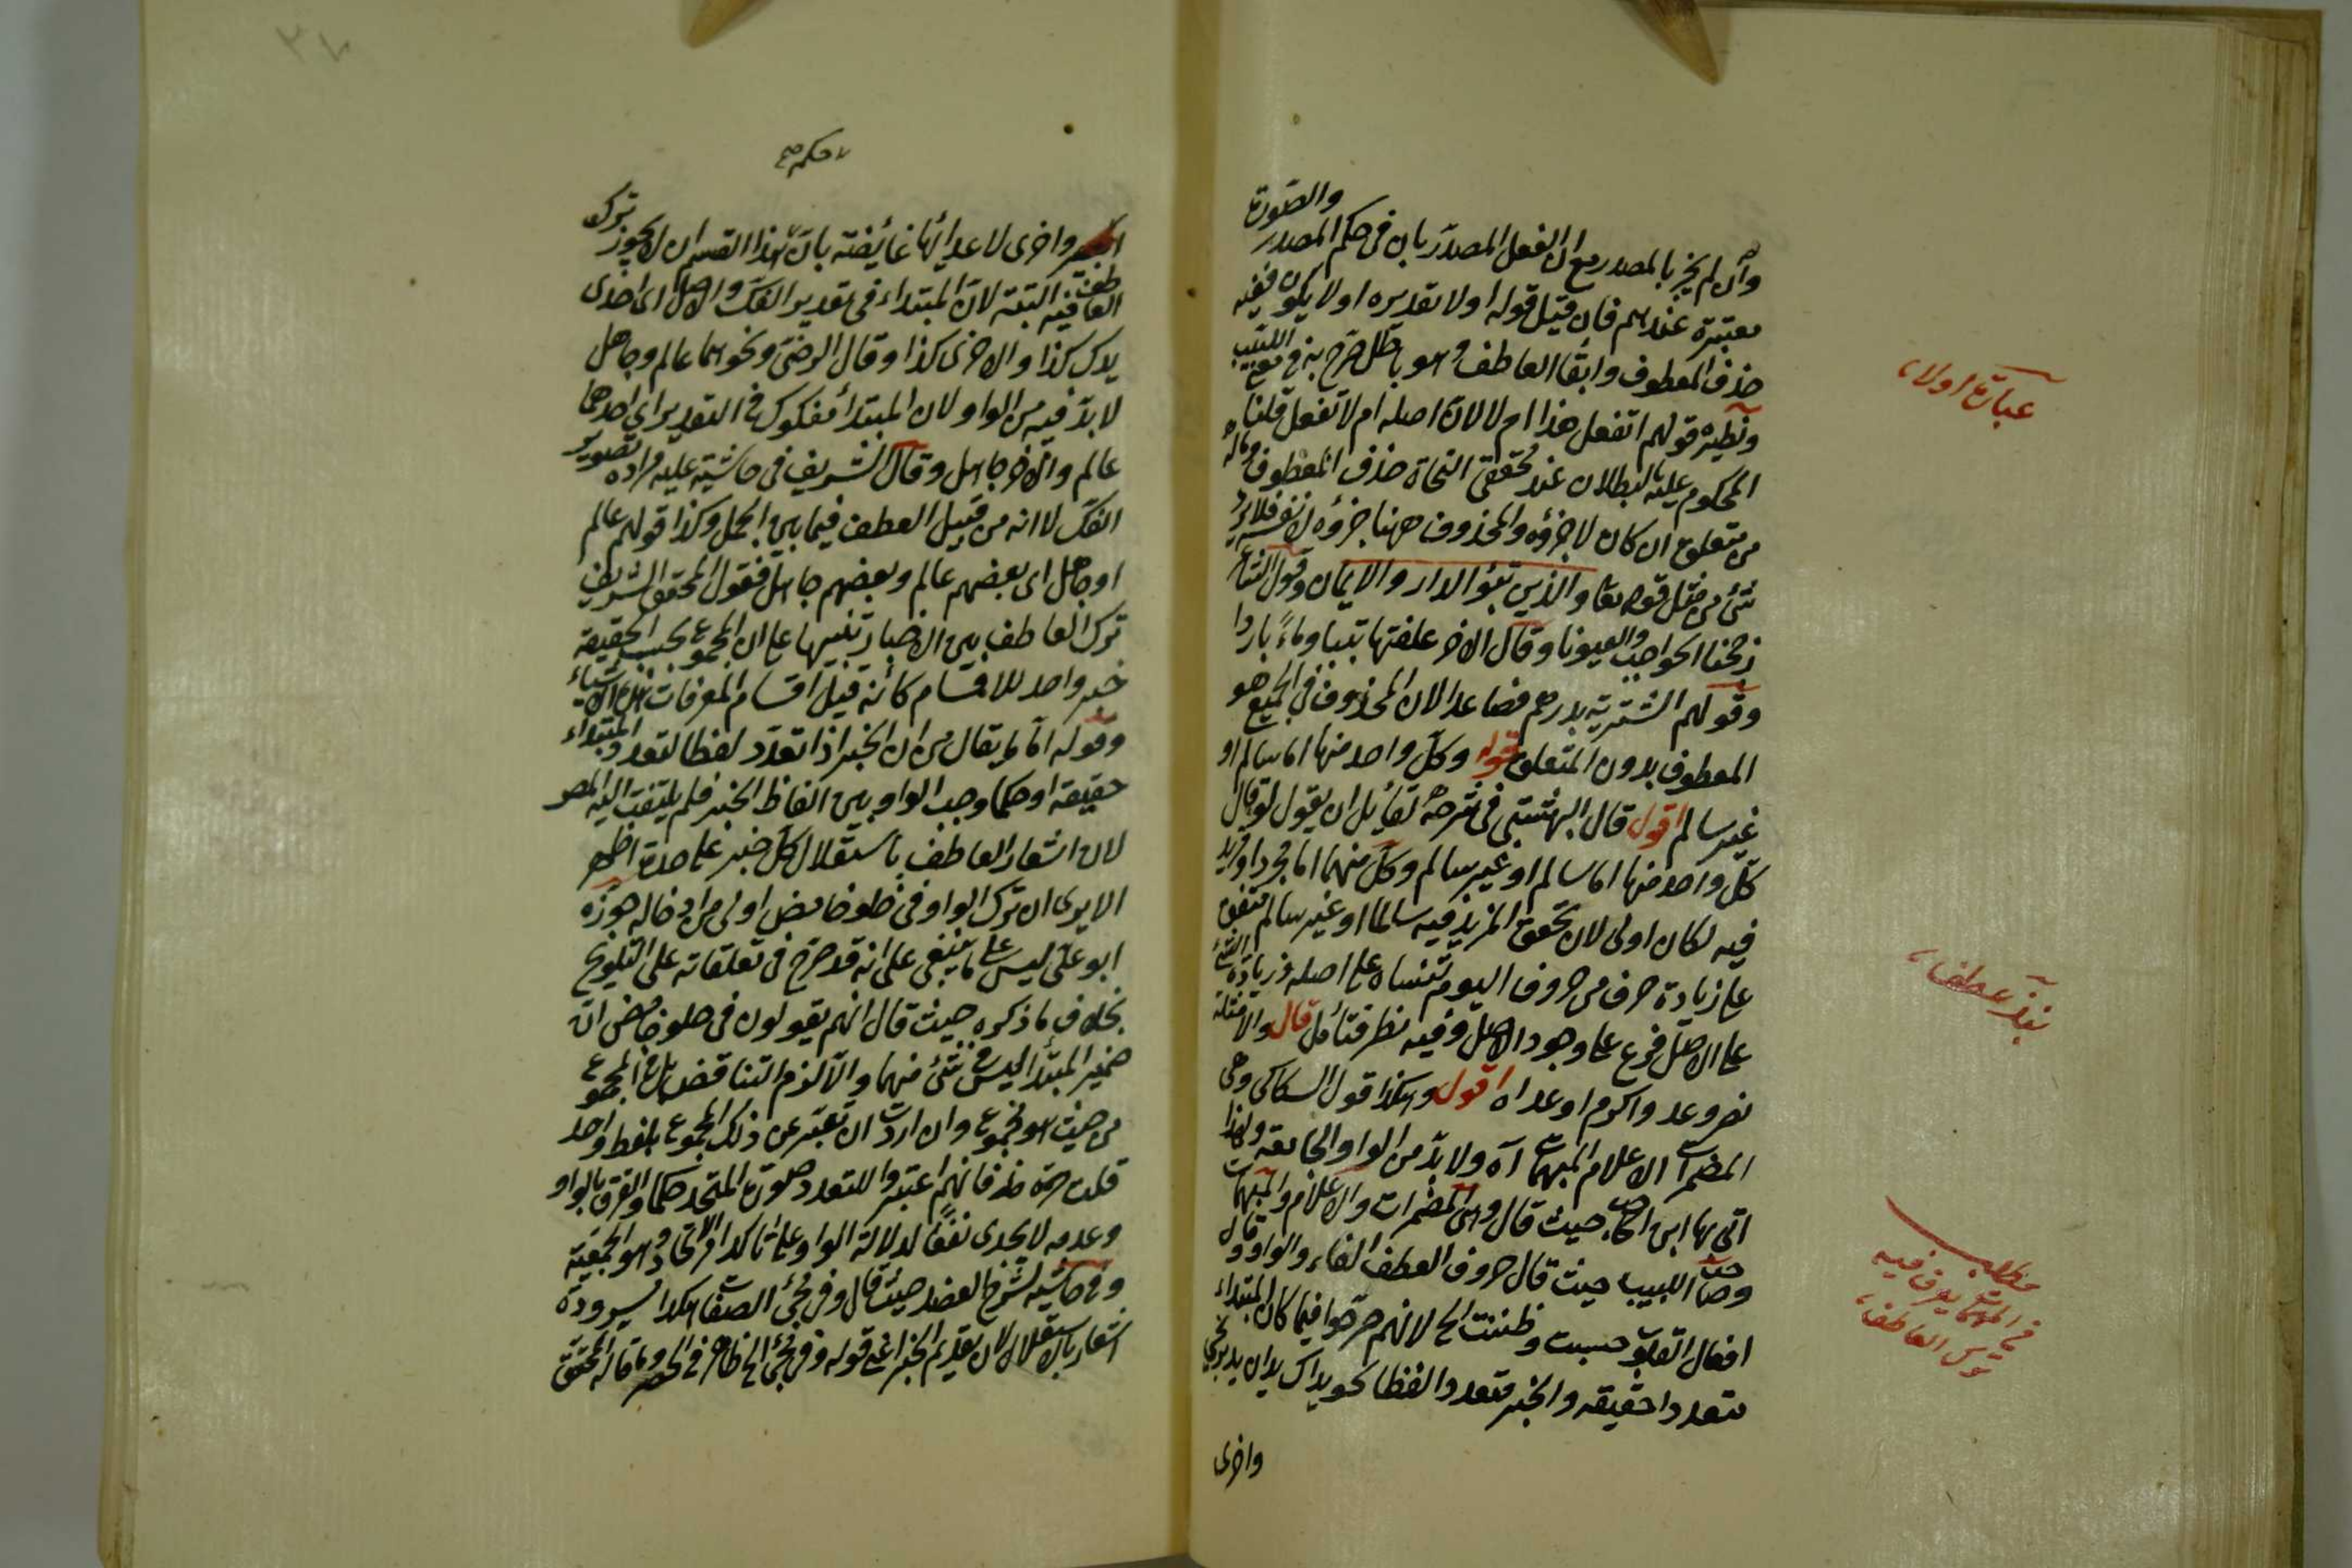 والصورة
وان لم يخبر بالمصدر مع ان الفعل المصدر بان في حكم المصدر
معتبرة عندهم فان قيل قوله اولا تقديره او لا يكون ففيه
حذف المعطوف وابقا العاطف وهو باطل صرح به في اللبيب
ونظيره قولهم اتفعل هذا ام لا لان اصله ام لا تفعل قلنا
المحكوم عليه بالبطلان عند محققي النحاة حذف المعطوف وماله
من متعلق ان كان لا جزؤه والمحذوف ههنا جزؤه لا نفسه فلا يرد
شئ من مثل قوله تعا والذين تبوؤ الدار والايمان وقول الشاعر
زججنا الحواجب والعيونا وقال الاخر علفتها تبنا وماءً باردا
وقولهم اشتريته بدرهم فصاعدا لان المحذوف في الجميع هو
المعطوف بدون المتعلق قوله وكل واحد منها اما سالم او
غير سالم اقول قال البهشتي في شرحه لقائل ان يقول لو قال
كل واحد منها اما سالم او غير سالم وكل منهما اما مجرد او مزيد
فيه لكان اولى لان تحقق المزيد فيه سالما او غير سالم متفق
على زيادة حرف من حروف اليوم تنساه على اصله وزيادة الشئ
على الاصل فرع على وجود الاصل وفيه نظر فتأمل قال والامثلة
نصر وعد واكرم اوعد اه اقول وهكذا قول السكاكي وهي
المضمرات الاعلام المبهمات آه ولا بد من الواو الجامعة ولهذا
اتى بها ابن الحاجب حيث قال وهي المضمرات والاعلام والمبهمات
وصاحب اللبيب حيث قال حروف العطف الفاء والواو وقال
افعال القلوب حسبت وظننت الخ لانهم صرحوا فيما كان المبتداء
متعددا حقيقه والخبر متعددا لفظا نحو يداك يد ان يد يرتجي
واخرى
عبارة اولا
مطلب
في المهمات يعرف فيه
ترك العاطف
ترك
واخرى لاعدائها غائضته بان هذا القسم ان لا يجوز
العاطف فيه البتة لان المبتداء في تقدير الفك والاصل اى احدى
يدك كذا والاخرى كذا وقال الرضى ونحو هما عالم وجاهل
لا بد فيه من الواو لان المبتدأ مفكوك في التقدير اي احدهما
عالم والاخر جاهل وقال الشريف في حاشيته عليه مراده تصوير
الفك لا انه من قبيل العطف فيما بين الجمل وكذا قولهم عالم
او جاهل اى بعضهم عالم وبعضهم جاهل فقول المحقق الشريف
ترك العاطف بين الاخبار تنبيها على ان المجموع بحسب الحقيقة
خبر واحد للاقسام كأنه قيل اقسام المعرفات هذه الاشياء
وقوله اما ما يقال من ان الخبر اذا تعدد لفظا لتعدد المبتداء
حقيقة او حكما وجب الواو بين الفاظ الخبر فلم يلتفت اليه المص
لان اشعار العاطف باستقلال كل خبر على حدة اظهر
الا يرى ان ترك الواو في حلو حامض اولى من ادخاله جوزه
ابو على ليس على ما ينبغى على انه قد صرح في تعلقاته على التلويح
بخلاف ما ذكره حيث قال انهم يقولون في حلو حامض ان
ضمير المبتدأ ليس في شئ منهما والا لزم التناقض بل في المجموع
من حيث هو مجموع وان اردت ان تعبر عن ذلك المجموع بلفظ واحد
قلت مز فانهم اعتبروا للتعدد صلوح المتحد حكما والفرق بالواو
وعدمه لا يجدى نفعا لدلالة الواو على تاكد امر الاتحاد وهو الجمعية
وفي حاشيته لشرح العضد حيث قال وفي مجئ الصفات هكذا مسرودة
اشعار باستقلال لان تقديم الخبر اعني قوله وفي مجئ الخ ظاهر في الحصر وما قاله المحقق